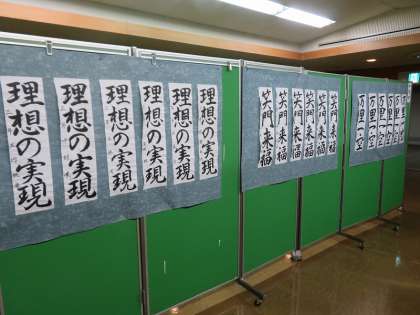 理想の実現
理想の実現
理想の実現
理想の実現
理想の実現
理想の実現
笑門来福
笑門来福
笑門来福
笑門来福
笑門来福
笑門来福
万里一空
万里一空
万里一空
万里一空